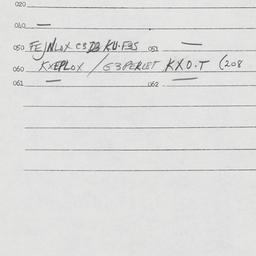 020
040 —
050 FEJNLOX C3DB KU-F3S 051 —
060 KXEPLOX / G3PERLET KXO.T (208
061 — 062 —